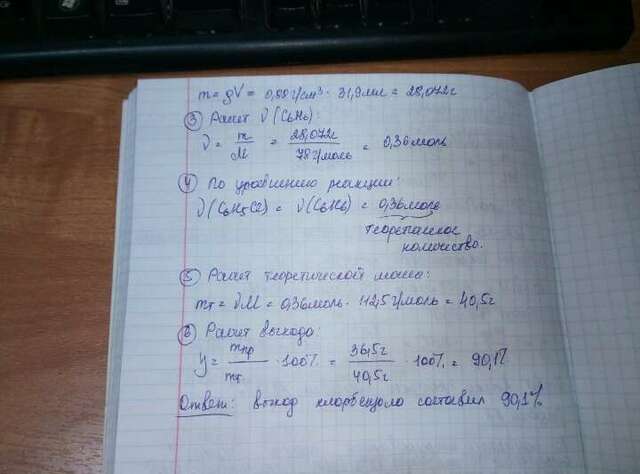 m = ρV = 0,88 г/см³ · 31,9 мл = 28,072 г
③ Расчет ν (C₆H₆):
ν = m/M = 28,072г/78 г/моль = 0,36 моль
④ По уравнению реакции:
ν (C₆H₅Cl) = ν (C₆H₆) = 0,36 моль
теоретическое
количество.
⑤ Расчет теоретической массы:
mт = νM = 0,36 моль · 112,5 г/моль = 40,5 г
⑥ Расчет выхода:
y = mпр/mт · 100% = 36,5 г/40,5 г · 100% = 90,1%
Ответ: выход хлорбензола составил 90,1%